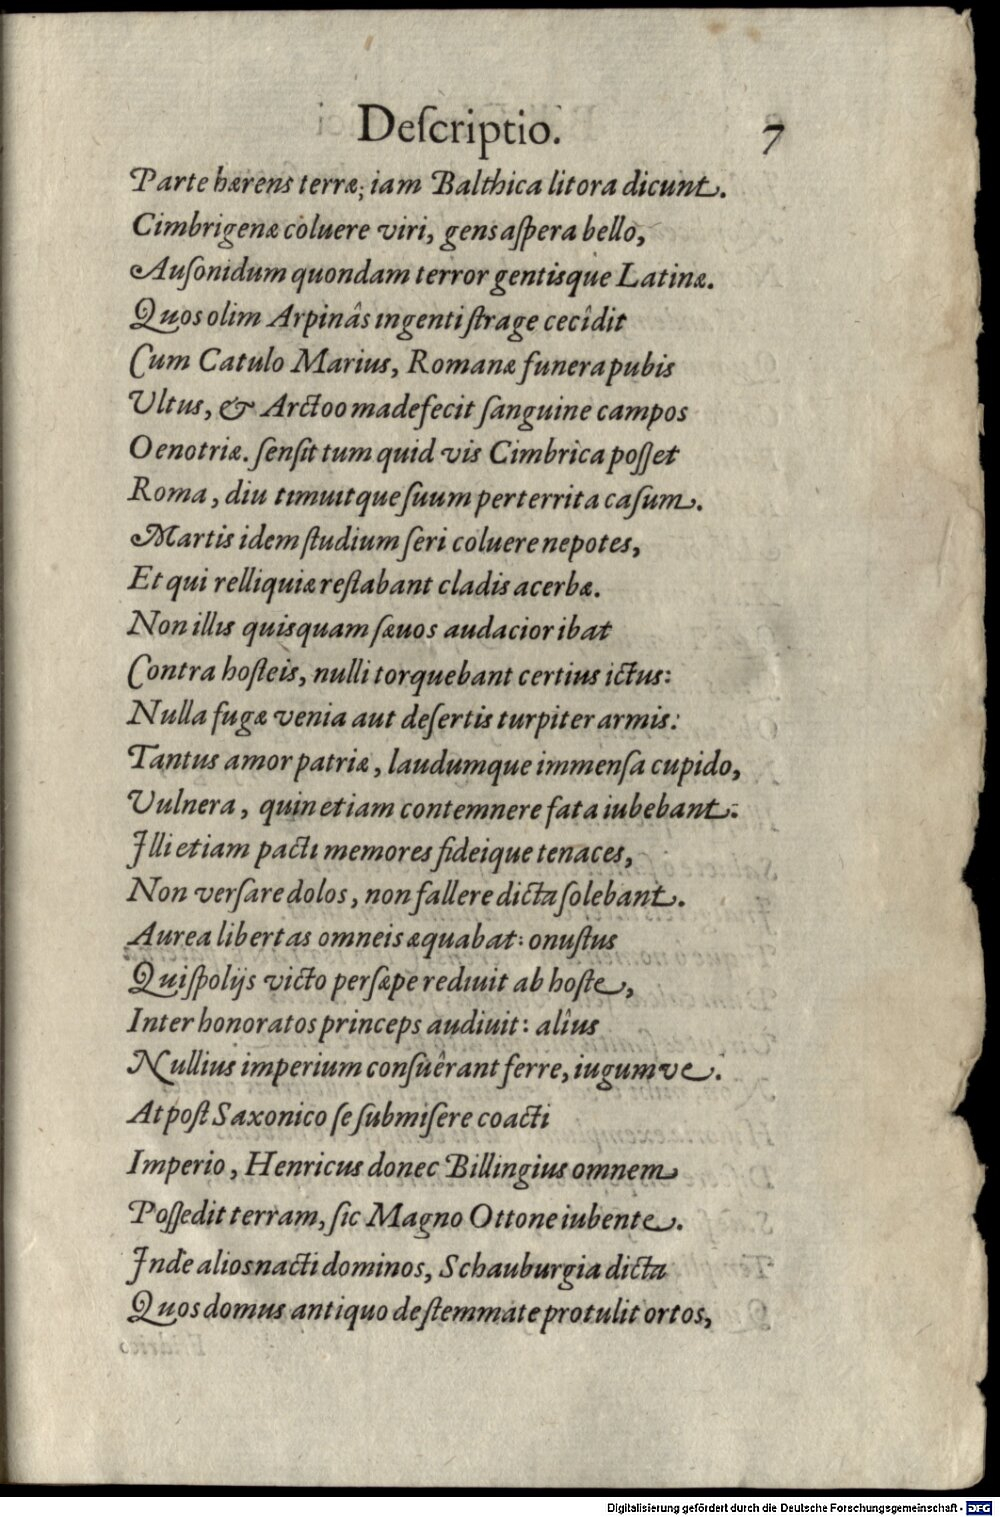 Deſcriptio. 7
Parte hærens terræ; iam Balthica litora dicunt.
Cimbrigenæ coluere viri, gens aſpera bello,
Auſonidum quondam terror gentisque Latinæ.
Quos olim Arpinâs ingenti ſtrage cecîdit
Cum Catulo Marius, Romanæ funera pubis
Ultus, & Arctoo madefecit ſanguine campos
Oenotriæ. ſenſit tum quid vis Cimbrica poſſet
Roma, diu timuitque ſuum perterrita caſum.
Martis idem ſtudium ſeri coluere nepotes,
Et qui relliquiæ reſtabant cladis acerbæ.
Non illis quisquam ſæuos audacior ibat
Contra hoſteis, nulli torquebant certius ictus:
Nulla fugæ venia aut deſertis turpiter armis:
Tantus amor patriæ, laudumque immenſa cupido,
Vulnera, quin etiam contemnere fata iubebant.
Illi etiam pacti memores fideique tenaces,
Non verſare dolos, non fallere dicta ſolebant.
Aurea libertas omneis æquabat: onuſtus
Qui ſpolijs victo perſæpe rediuit ab hoſte,
Inter honoratos princeps audiuit: alîus
Nullius imperium conſuêrant ferre, iugumve.
At poſt Saxonico ſe ſubmiſere coacti
Imperio, Henricus donec Billingius omnem
Poſſedit terram, ſic Magno Ottone iubente.
Inde alios nacti dominos, Schauburgia dicta
Quos domus antiquo de ſtemmate protulit ortos,
Digitalisierung gefördert durch die Deutsche Forschungsgemeinschaft - DFG